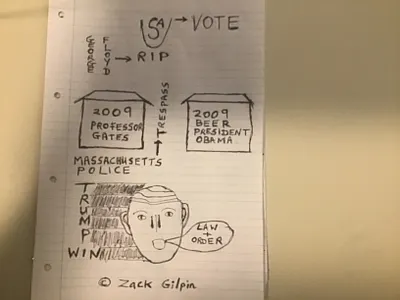 USA → VOTE
GEORGE
FLOYD
→ RIP
2009
PROFESSOR
GATES
TRESPASS
2009
BEER
PRESIDENT
OBAMA.
MASSACHUSETTS
POLICE
TRUMP
WIN
LAW
+
ORDER
© Zack Gilpin